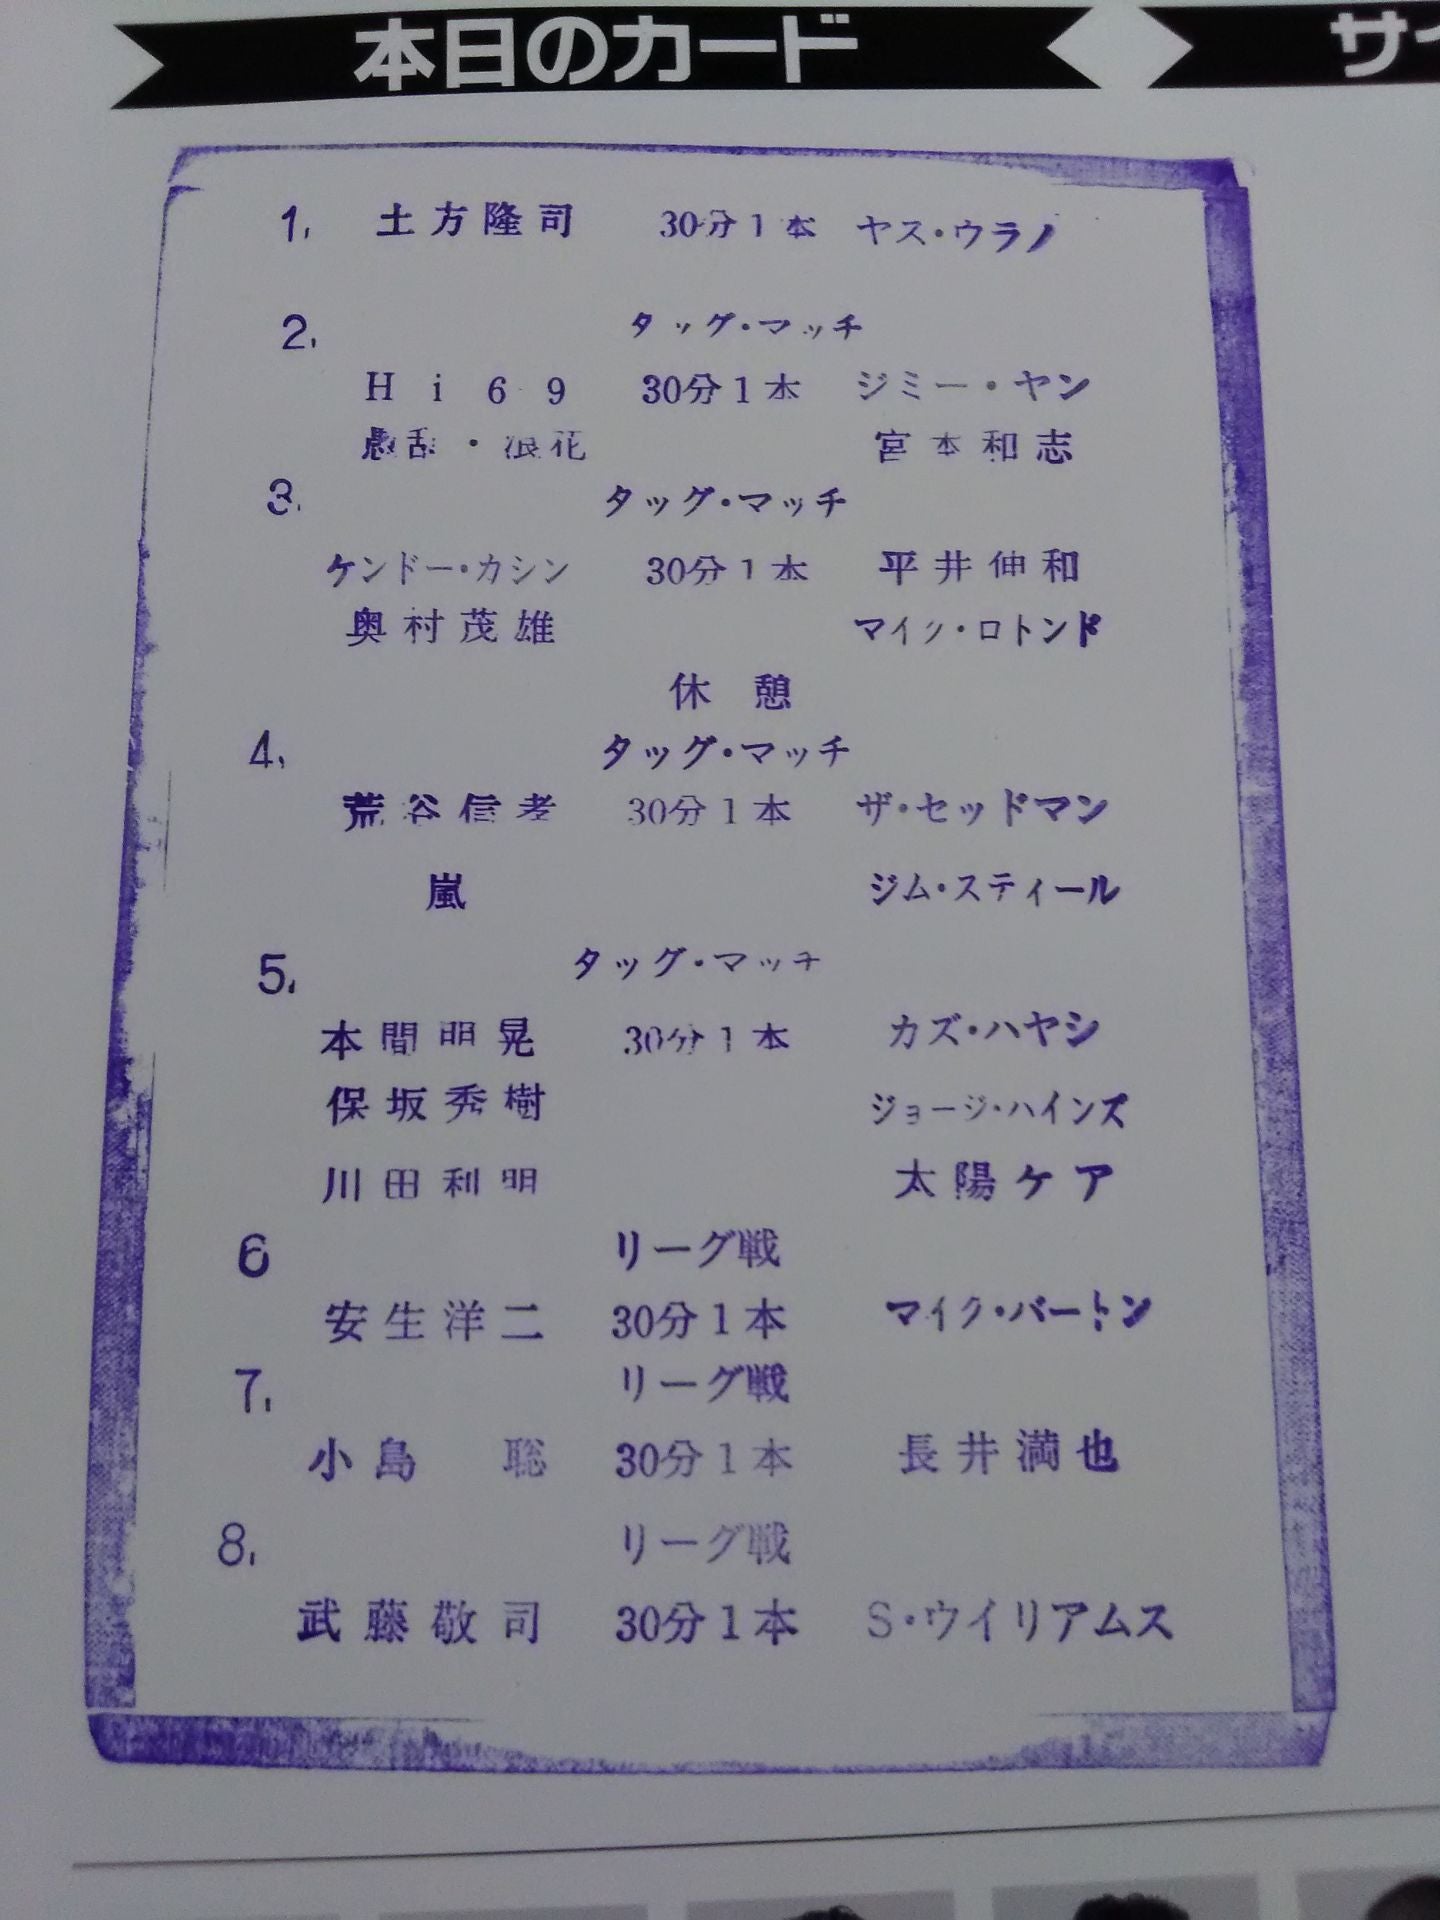 本日のカード
サイ
1, 土方隆司 30分1本 ヤス・ウラノ
2, タッグ・マッチ
Hi69 30分1本 ジミー・ヤン
愚乱・浪花 宮本和志
3, タッグ・マッチ
ケンドー・カシン 30分1本 平井伸和
奥村茂雄 マイク・ロトンド
休憩
4, タッグ・マッチ
荒谷信孝 30分1本 ザ・セッドマン
嵐 ジム・スティール
5, タッグ・マッチ
本間朋晃 30分1本 カズ・ハヤシ
保坂秀樹 ジョージ・ハインズ
川田利明 太陽ケア
6 リーグ戦
安生洋二 30分1本 マイク・バートン
7, リーグ戦
小島 聡 30分1本 長井満也
8, リーグ戦
武藤敬司 30分1本 S・ウイリアムス